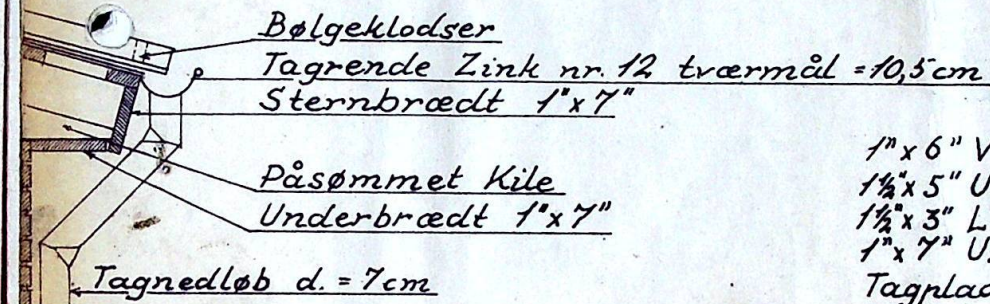 Bølgeklodser
Tagrende Zink nr. 12 tværmål = 10,5 cm
Sternbrædt 1" x 7"
Påsømmet Kile
Underbrædt 1" x 7"
Tagnedløb d. = 7 cm
1" x 6" V
1½" x 5" U
1½" x 3" L
1" x 7" U